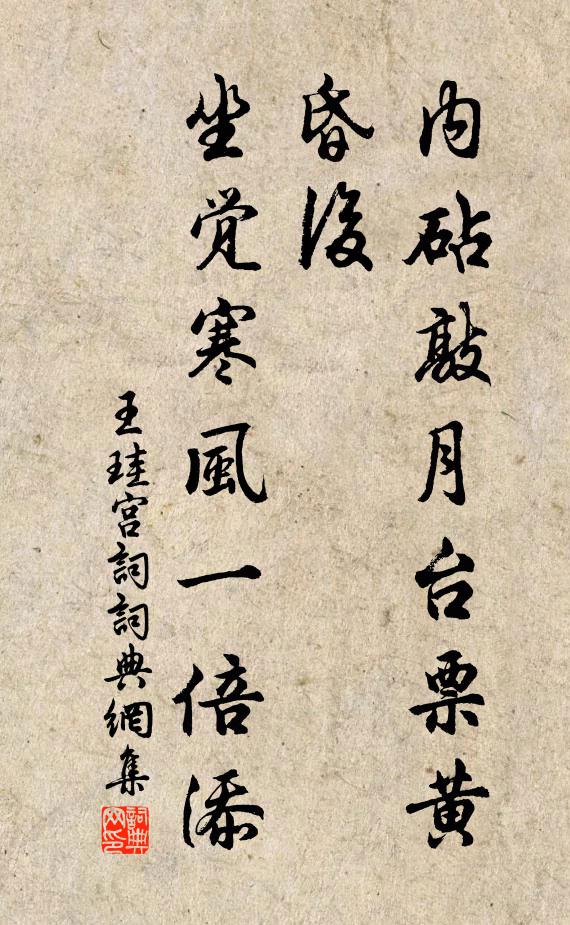 内砧敲月台票黄
昏後
坐觉寒風一倍添
王珪宫詞詞典網集
詞典网印